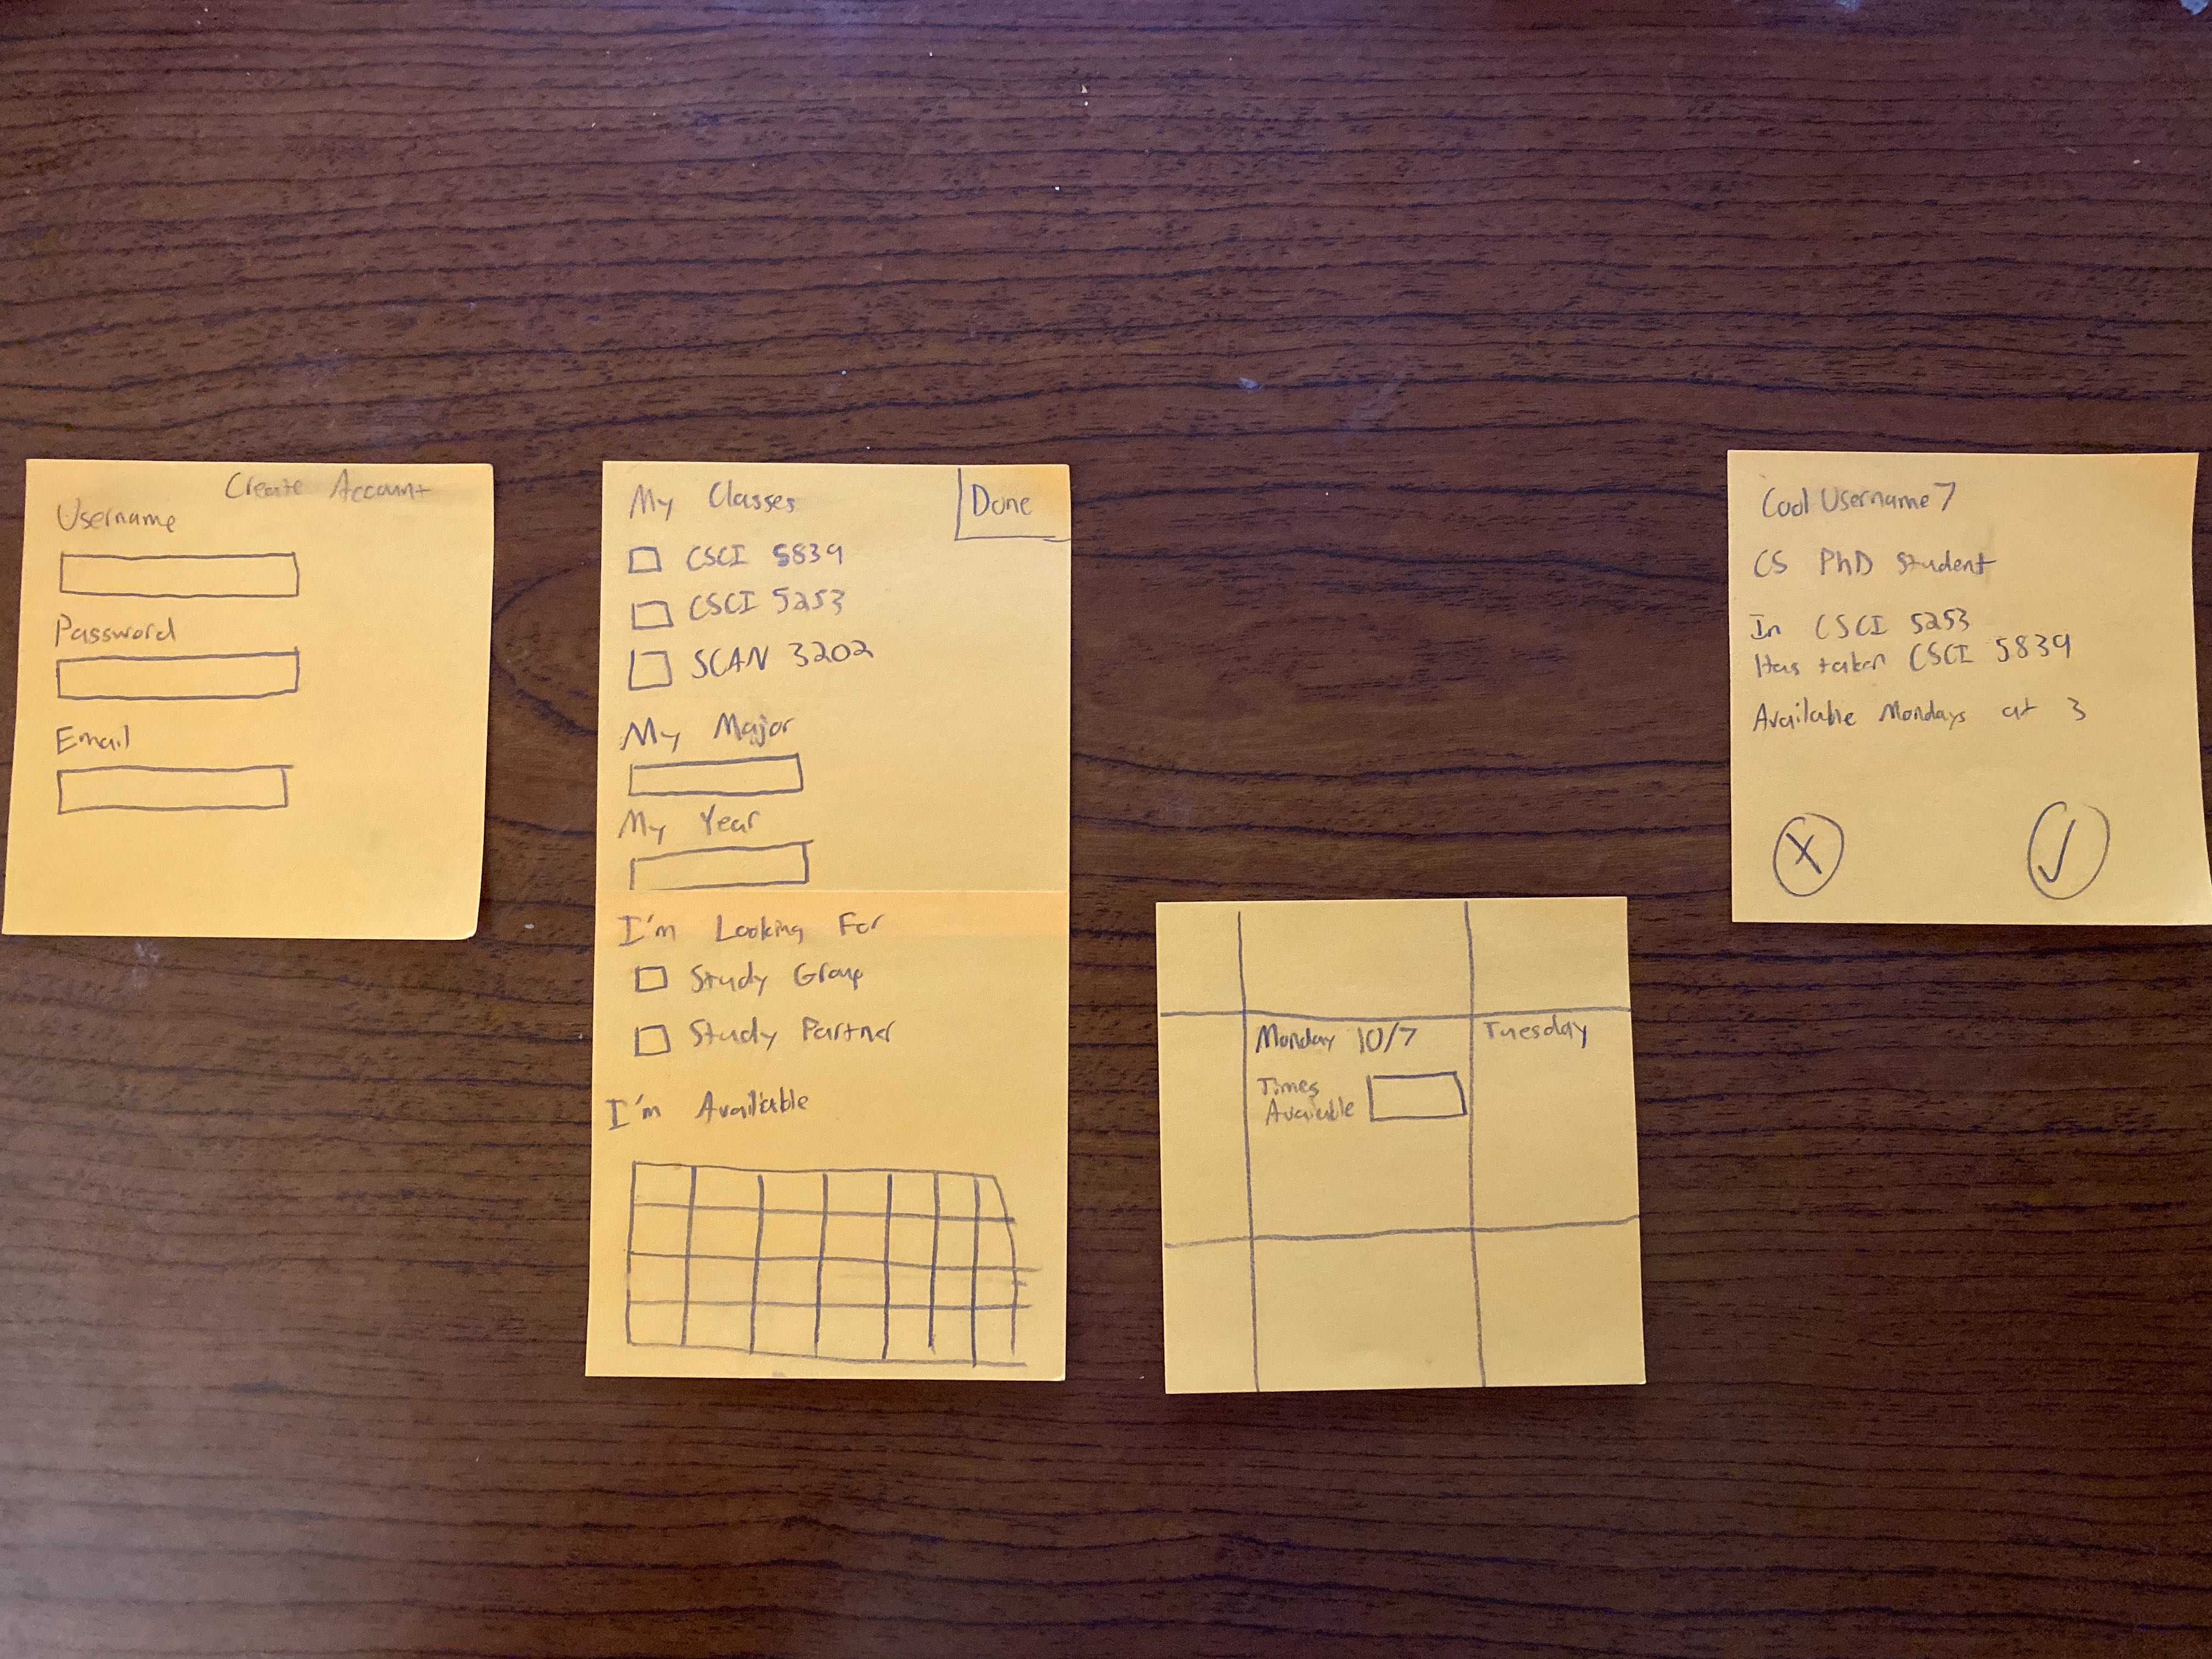 Create Account
Username
Password
Email
My Classes
Done
CSCI 5839
CSCI 5253
SCAN 3202
My Major
My Year
I'm Looking For
Study Group
Study Partner
I'm Available
Monday 10/7
Tuesday
Times
Available
Cool Username 7
CS PhD Student
In CSCI 5253
Has taken CSCI 5839
Available Mondays at 3
X
✓